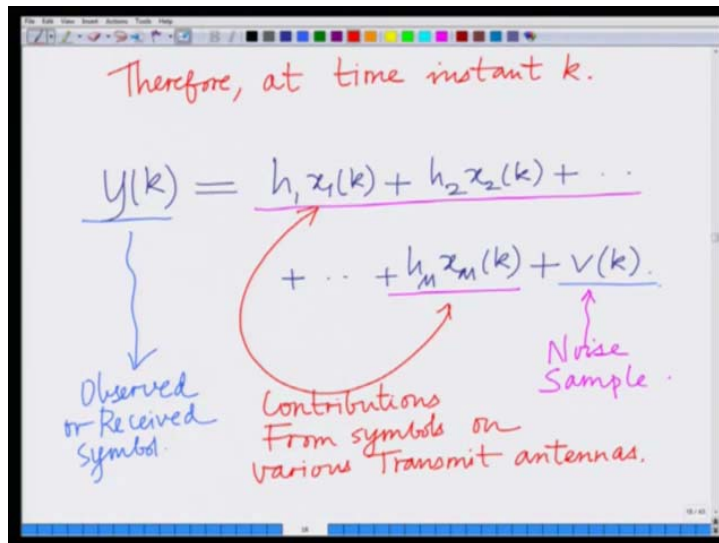 File Edit View Insert Actions Tools Help
Therefore, at time instant k.
y(k) = h₁x₁(k) + h₂x₂(k) + ··
+ ·· + h_M x_M(k) + v(k).
Observed
or Received
Symbol.
Contributions
From symbols on
various Transmit antennas.
Noise
Sample.
18